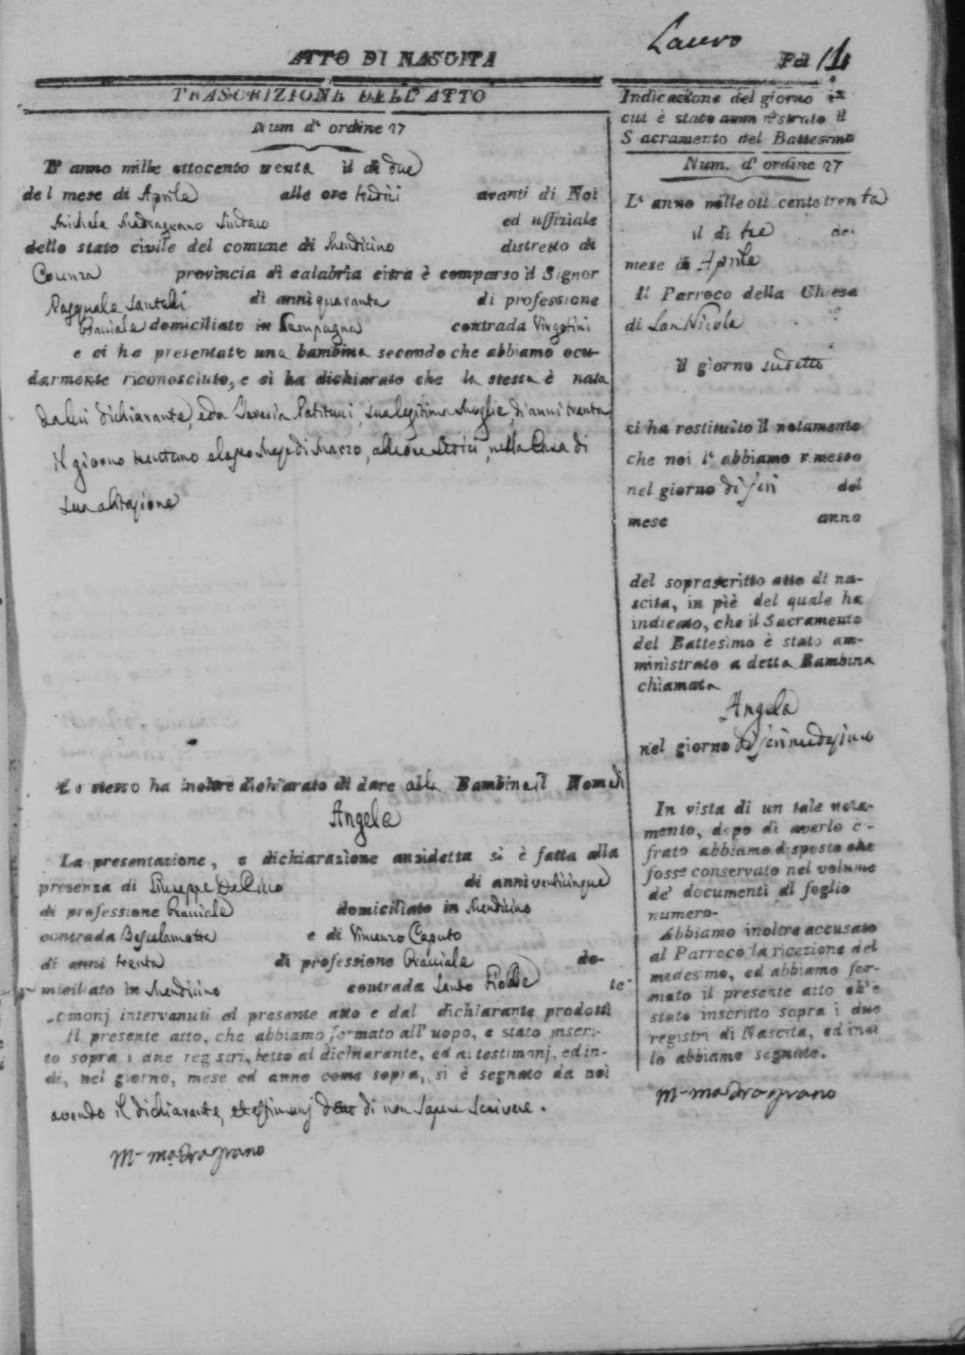 Lauro
ATTO DI NASCITA
TRASCRIZIONE DELL' ATTO
Num d' ordine 27
L' anno mille ottocento trenta il dì due
del mese di Aprile alle ore tredici avanti di Noi
Michele Madragrano Sindaco ed uffiziale
dello stato civile del comune di Mendicino distretto di
Cosenza provincia di calabria citra è comparso il Signor
Pasquale di anni quaranta di professione
Braciale domiciliato in contrada
e ci ha presentato una bambina secondo che abbiamo ocu-
larmente riconosciuto, e si ha dichiarato che la stessa è nata
da lui dichiarante, e da Teresia sua legitima Moglie, di anni trenta
il giorno trentuno Mese di Marzo, alle ore nella Casa di
sua abitazione
Lo stesso ha inoltre dichiarato di dare alla Bambina il Nome di
Angela
La presentazione, e dichiarazione anzidetta si è fatta alla
presenza di Giuseppe di anni venticinque
di professione Braciale domiciliato in Mendicino
contrada e di Vincenzo Caputo
di anni trenta di professione Braciale do-
miciliato in Mendicino contrada Santo te-
stimonj intervenuti al presente atto e dal dichiarante prodotti
Il presente atto, che abbiamo formato all' uopo, e stato inseri-
to sopra i due registri, letto al dichiarante, ed ai testimonj, ed in-
di, nel giorno, mese ed anno come sopra, si è segnato da noi
avendo il dichiarante, e testimonj detto di non sapere scrivere.
M. Madragrano
Indicazione del giorno in
cui è stato amministrato il
Sacramento del Battesimo
Num. d' ordine 27
L' anno mille ottocento trenta
il dì tre del
mese di Aprile
Il Parroco della Chiesa
di San Nicola
il giorno sudetto
ci ha restituito il notamento
che noi l' abbiamo rimesso
nel giorno di jeri del
mese anno
del soprascritto atto di na-
scita, in piè del quale ha
indicato, che il Sacramento
del Battesimo è stato am-
ministrato a detta Bambina
chiamata
Angela
nel giorno di jeri medesimo
In vista di un tale nota-
mento, dopo di averlo ci-
frato abbiamo disposto che
fosse conservato nel volume
de' documenti al foglio
numero-
Abbiamo inoltre accusato
al Parroco la ricezione del
medesimo, ed abbiamo for-
mato il presente atto ch' è
stato inscritto sopra i due
registri di Nascita, ed indi
lo abbiamo segnato.
M. Madragrano